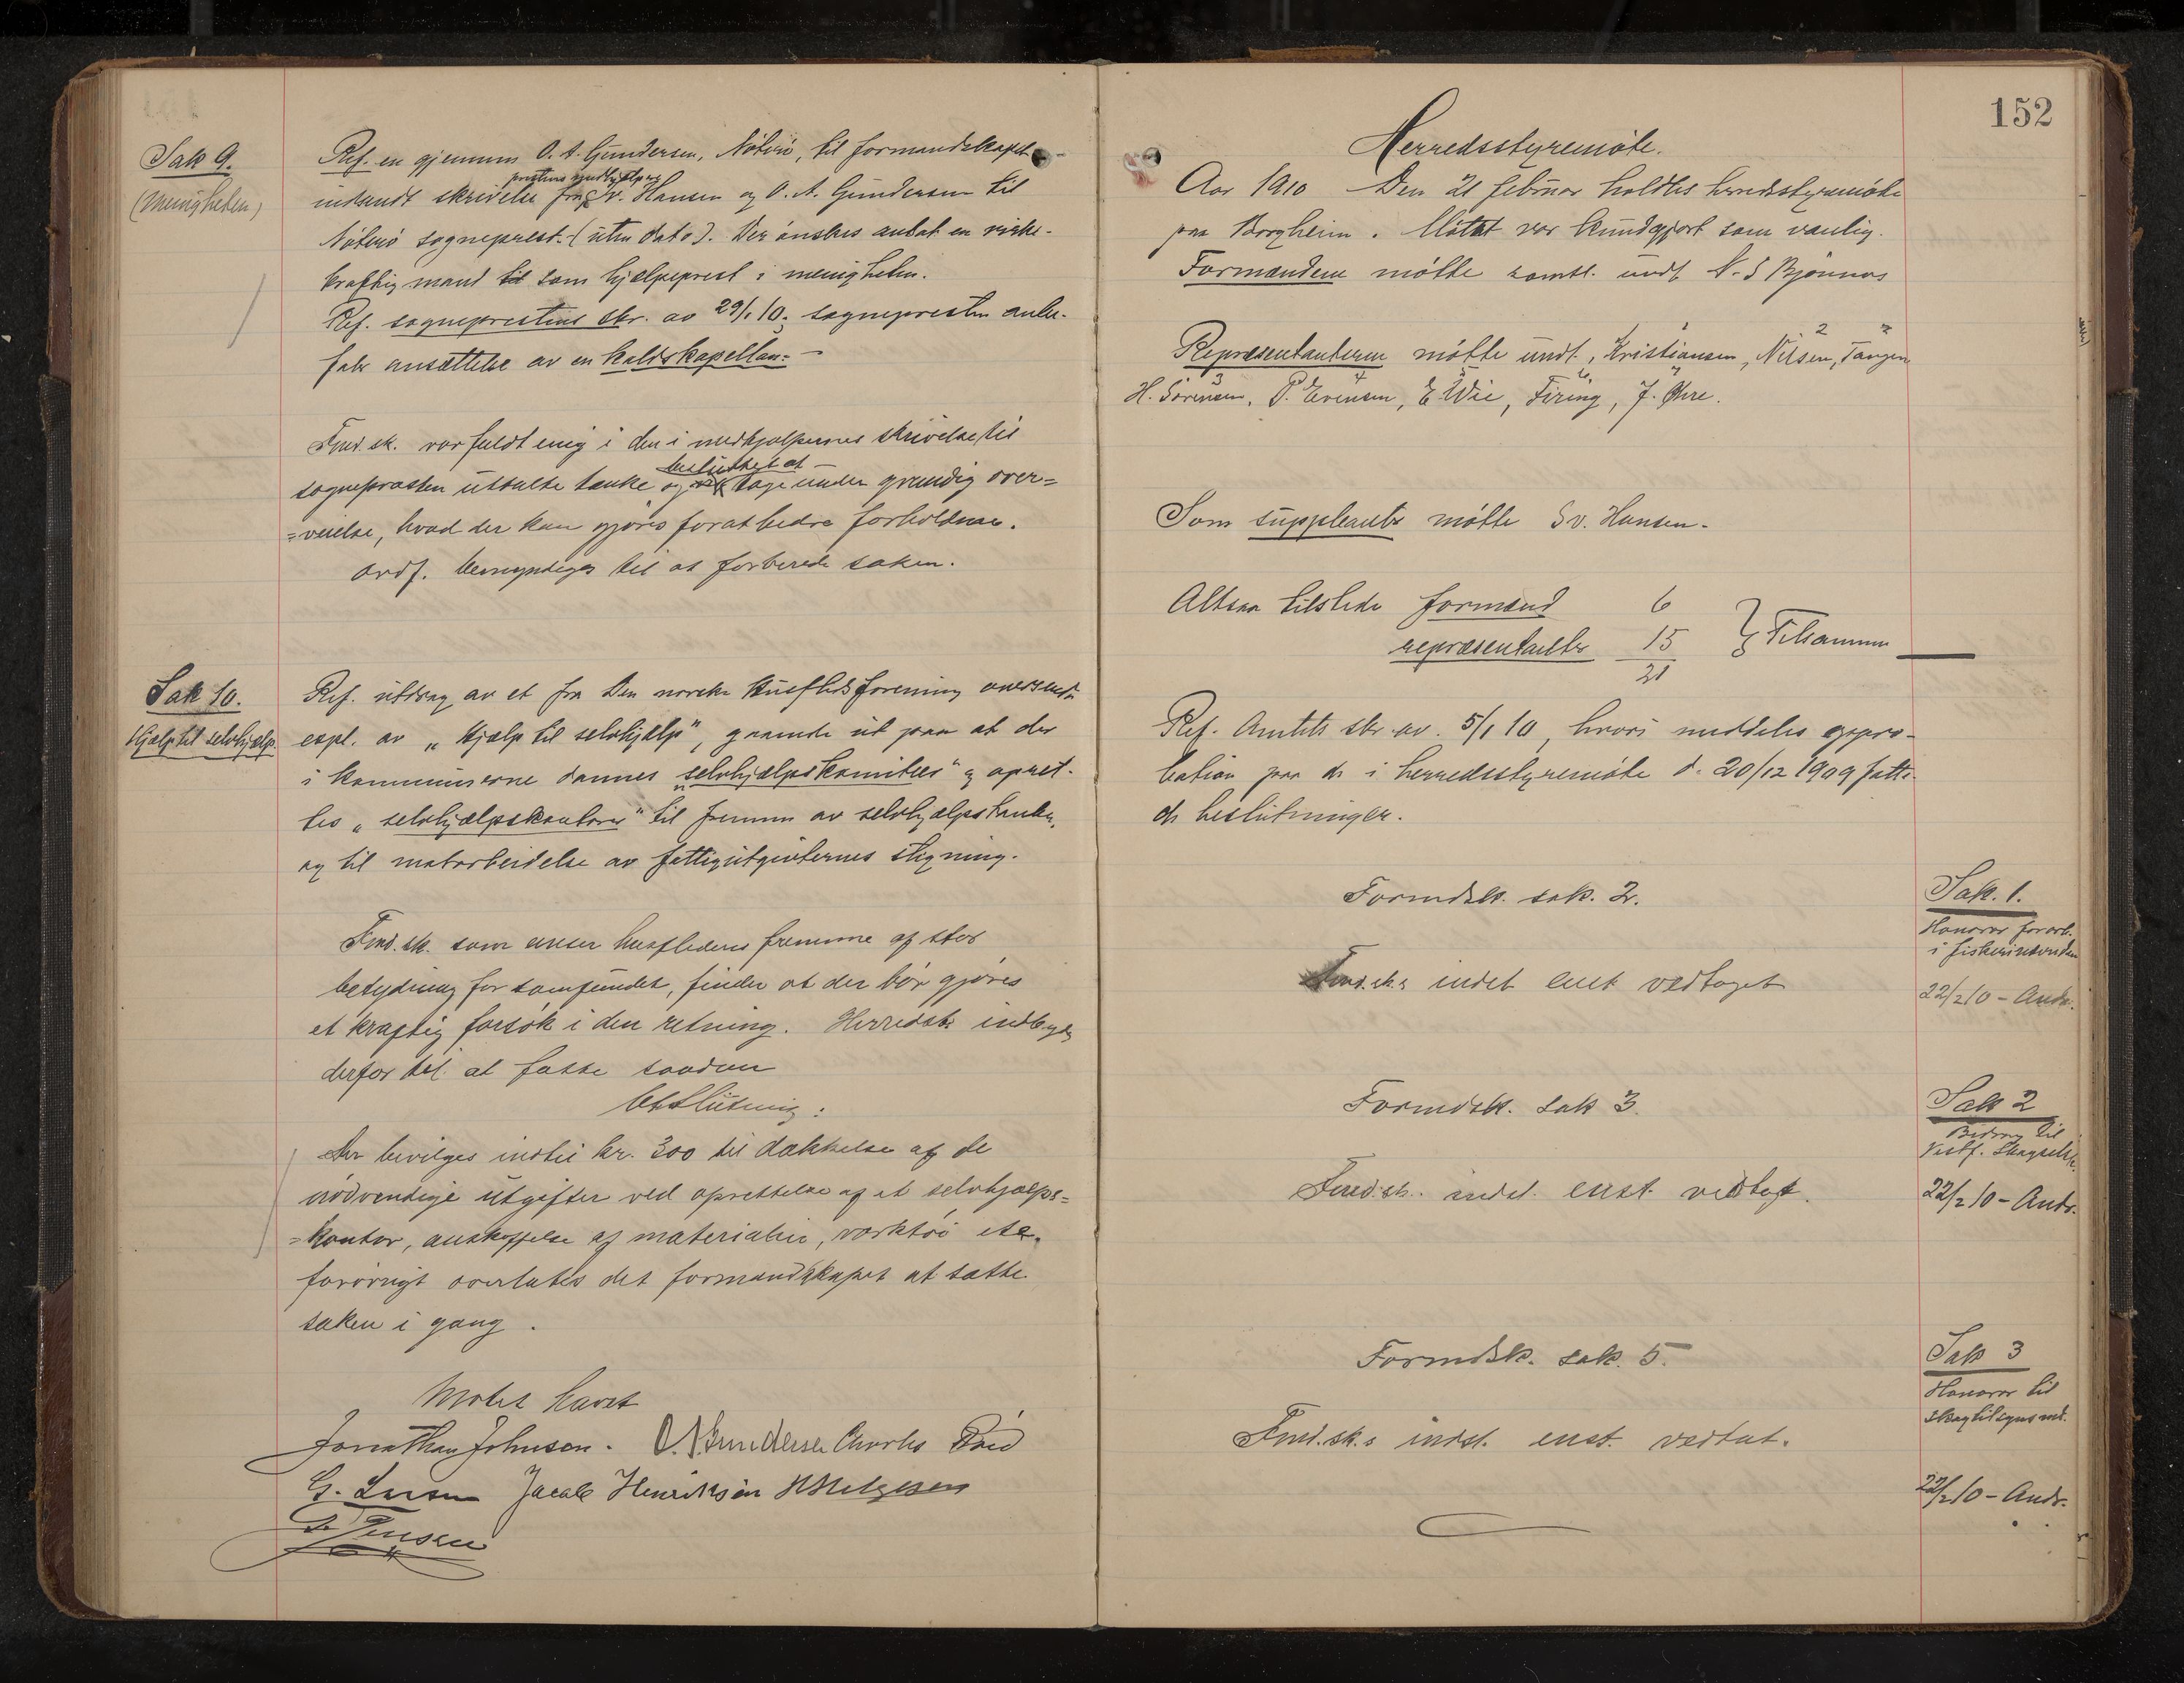 Sak 9.
(Menigheten)
Ref. en gjennem O. A. Gundersen, Nöterö, til formandskapet
prestens medhjelpere
indsendt skrivelse fra Sv. Hansen og O. A. Gundersen til
Nöterö sogneprest. (uten dato). Der önskes ansat en virke-
kraftig mand til som hjelpeprest i menigheten.
Ref. sogneprestens skr. av 29/1 10. sognepresten anbe-
faler ansættelse av en kaldskapellan. -
Fmd.sk. var fuldt enig i den i medhjelpernes skrivelse til
besluttet at
sognepresten uttalte tanke og tage under grundig over=
=veielse, hvad der kan gjöres for at bedre forholdene.
Ordf. bemyndiges til at forberede saken.
Sak 10.
Hjælp til selvhjælp.
Ref. utdrag av et fra Den norske Husflidsforening oversendt
expl. av „Hjælp til selvhjælp", gaaende ut paa at der
i kommunerne dannes „selvhjælpskomiteer" og opret-
tes „selvhjælpskontorer" til fremme av selvhjælpstanken,
og til motarbeidelse av fattigutgivternes stigning.
Fmd.sk. som anser husflidens fremme af stor
betydning for samfundet, finder at der bör gjöres
et kraftig forsök i den retning. Herredst. indbydes
derfor til at fatte saadan
beslutning:
Der bevilges indtil kr. 300 til dækkelse af de
nödvendige utgifter ved oprettelse af et selvhjælps=
=kontor, anskaffelse af materialier, værktöi etc.
forövrigt overlates det formandskapet at sætte
saken i gang.
Mötet hævet
Jonathan Johnsen. O. A. Gundersen Charles
G. Larsen Jacob Henriksen H Helgesen
Jensen
152
Herredsstyremöte.
Aar 1910 Den 21 februar holdtes herredsstyremöte
paa Borgheim. Mötet var kundgjort som vanlig.
Formændene mötte samtl. undt. N. S Bjönnes
Repræsentanterne mötte undt. Kristiansen, Nilsen, Tangen
H. Sörensen, P. Evensen, E Wie, Firing, J. Öhre.
Som suppleanter mötte Sv. Hansen.
Altsaa tilstede formænd 6
repræsentanter 15 } Tilsammen
21
Ref. Amtets skr. av 5/1 10, hvori meddeles appro-
bation paa de i herredsstyremöte d. 20/12 1909 fatte-
de beslutninger.
Formdsk. sak. 2.
Sak. 1.
Honorar for arb.
i fiskerinævnden
Fmd.sk.s indst. enst. vedtaget
22/2 10 - Andr.
Formdsk. sak 3.
Sak 2
Bidrag til
Vestf. Skogselsk.
Fmd.sk.s indst. enst. vedtagt.
22/2 10 - Andr.
Formdsk. sak. 5.
Sak 3
Honorar til
skogtilsynsmd.
Fmd.sk.s indst. enst. vedtat.
22/2 10 - Andr.